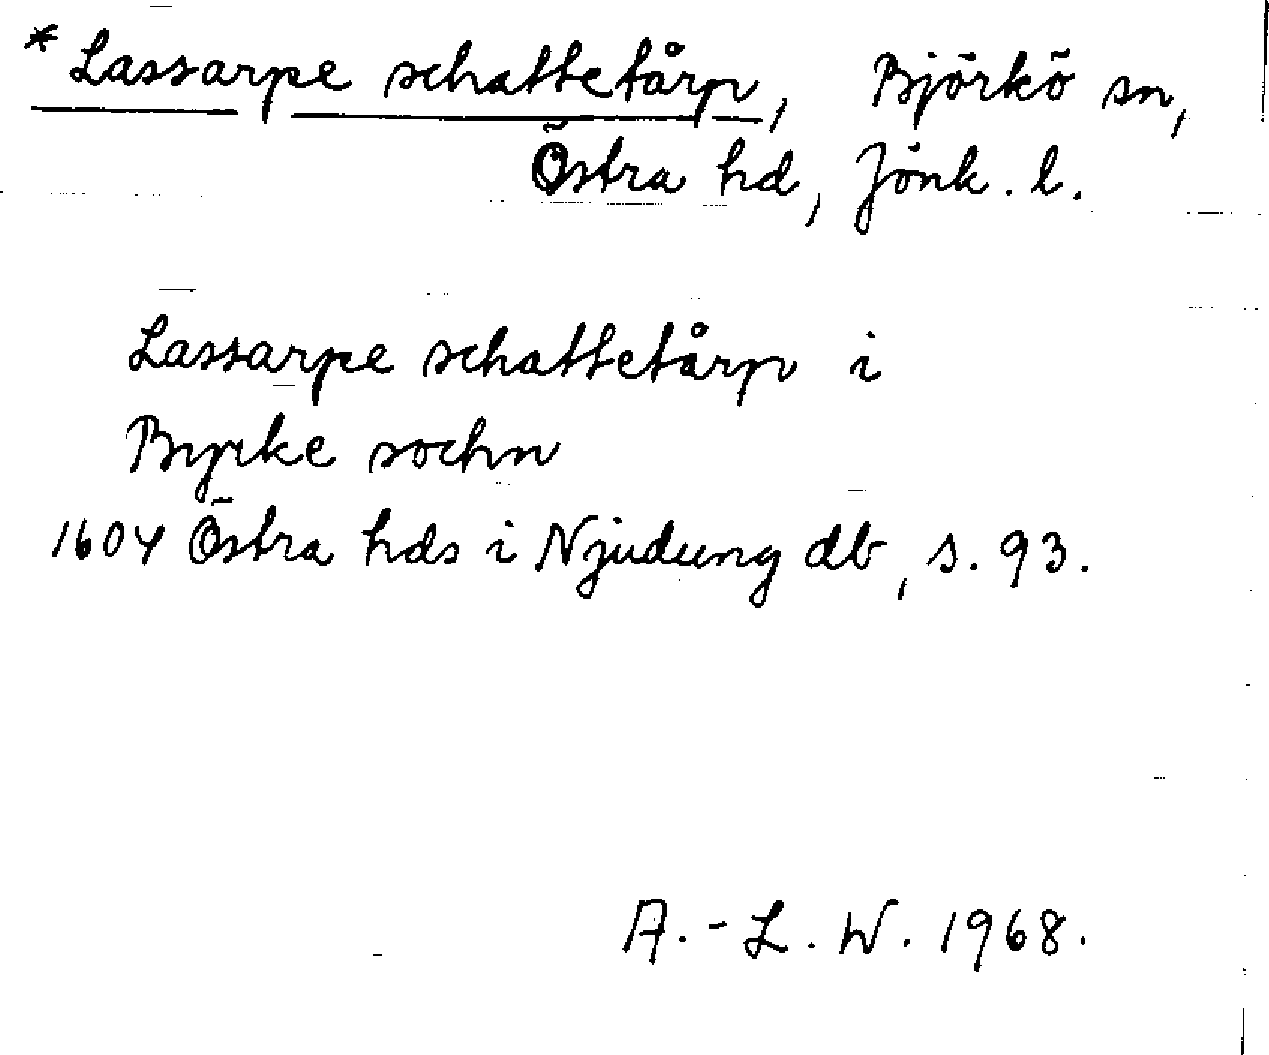 * Lassarpe schattetårp, Björkö sn,
Östra hd, Jönk. l.
Lassarpe schattetårp i
Byrke sochn
1604 Östra hds i Njudung db, s. 93.
A.-L. W. 1968.